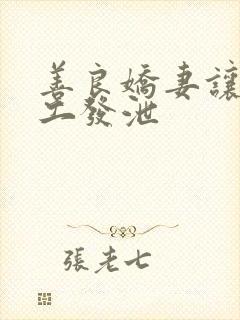 善良嬌妻讓
工發泄
張老七